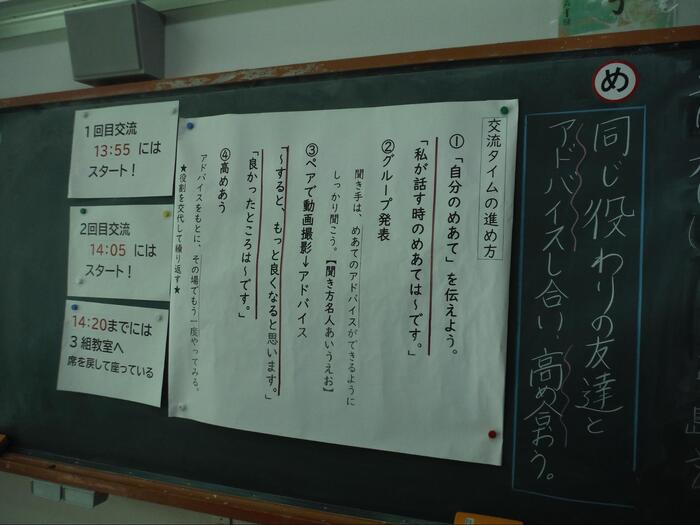 め
同じ役わりの友達と
アドバイスし合い、高め合おう。
交流タイムの進め方
①「自分のめあて」を伝えよう。
「私が話す時のめあては~です。」
②グループ発表
聞き手は、めあてのアドバイスができるように
しっかり聞こう。【聞き方名人あいうえお】
③ペアで動画撮影→アドバイス
~すると、もっと良くなると思います。」
「良かったところは~です。」
④高めあう
アドバイスをもとに、その場でもう一度やってみる。
★役割を交代して繰り返す★
1回目交流
13:55 には
スタート!
2回目交流
14:05 には
スタート!
14:20までには
3組教室へ
席を戻して座っている